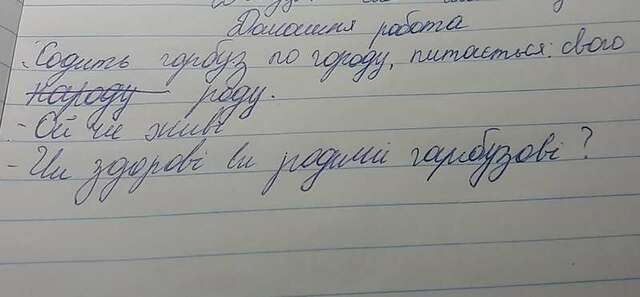 Домашня робота
Ходить гарбуз по городу, питається свого
народу роду.
- Ой чи живі
- Чи здорові ви родичі гарбузові?